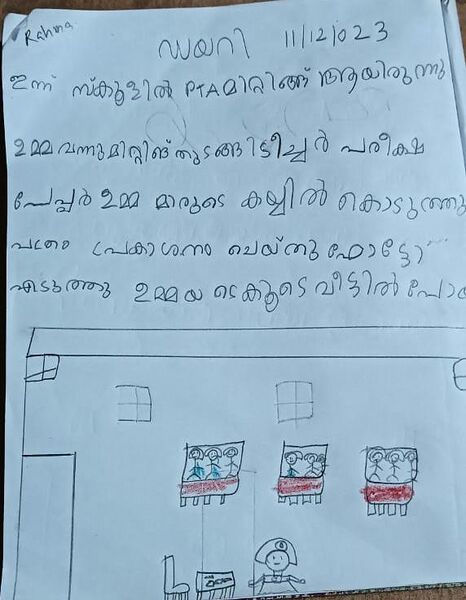 Rahna
ഡയറി 11/12/2023
ഇന്ന് സ്കൂളിൽ PTA മിറ്റിങ്ങ് ആയിരുന്നു
ഉമ്മ വന്നു മിറ്റിങ്ങ് തുടങ്ങി ടീച്ചർ പരീക്ഷ
പേപ്പർ ഉമ്മ മാരുടെ കയ്യിൽ കൊടുത്തു
പത്രം പ്രകാശനം ചെയ്തു ഫോട്ടോ
എടുത്തു ഉമ്മയു ടെകൂടെ വീട്ടിൽ പോ